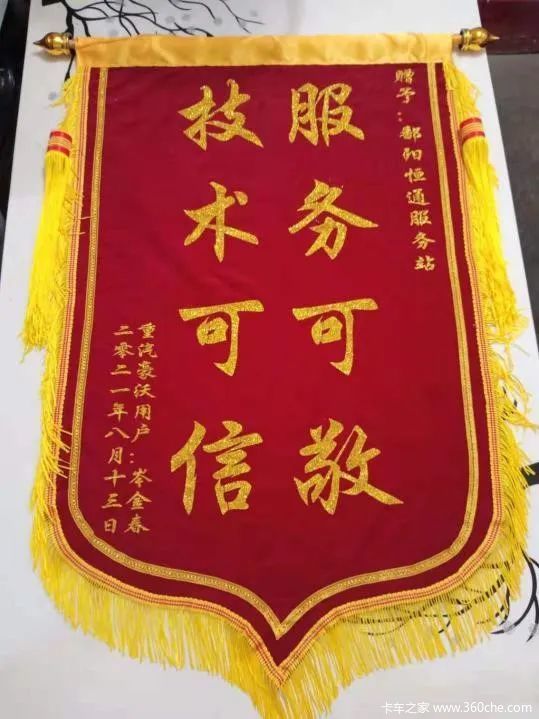 赠予：鄱阳恒通服务站
服务可敬
技术可信
重汽豪沃用户：岑金春
二零二一年八月十三日
卡车之家 www.360che.com